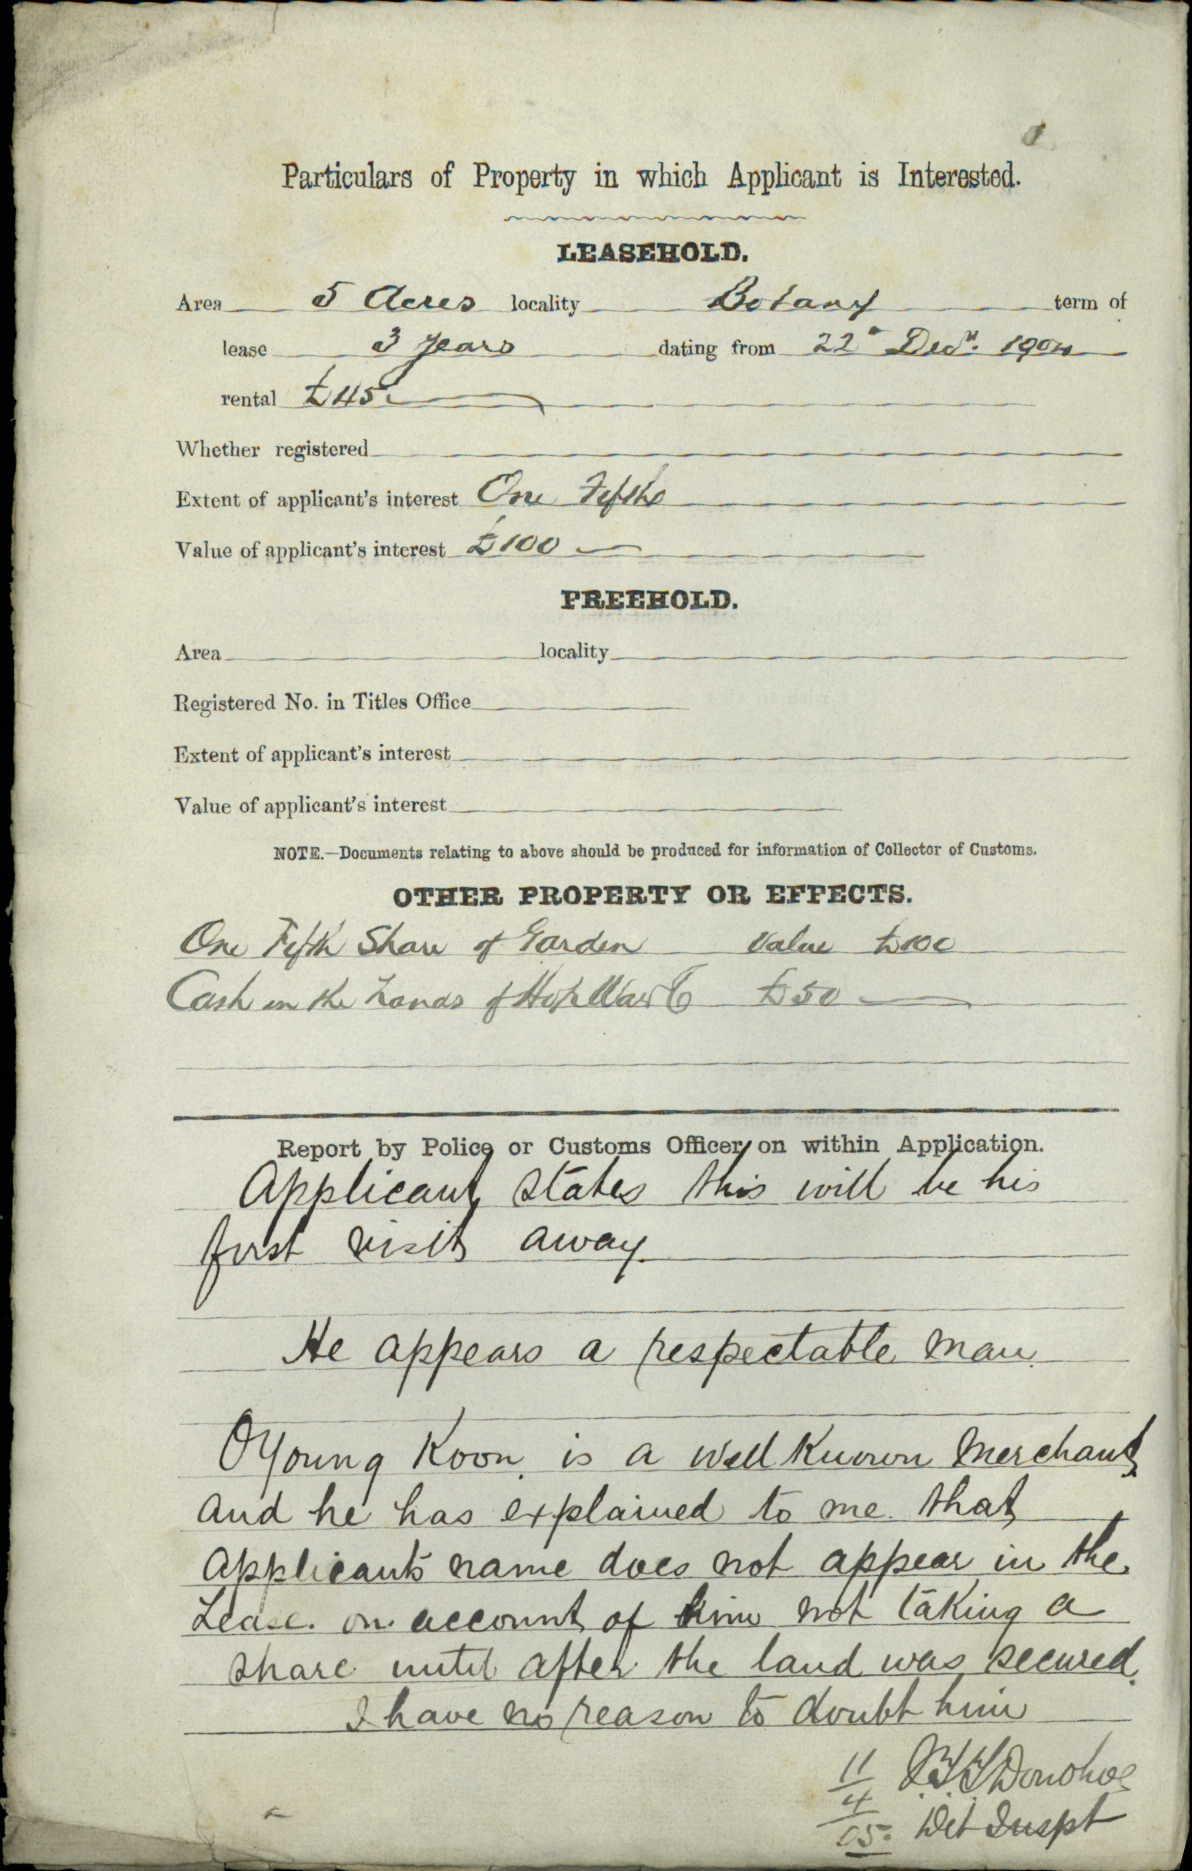 Particulars of Property in which Applicant is Interested.
LEASEHOLD.
Area 5 Acres locality Botany term of
lease 3 years dating from 22nd Decr. 1904
rental £45
Whether registered
Extent of applicant's interest One Fifths
Value of applicant's interest £100
FREEHOLD.
Area locality
Registered No. in Titles Office
Extent of applicant's interest
Value of applicant's interest
NOTE.—Documents relating to above should be produced for information of Collector of Customs.
OTHER PROPERTY OR EFFECTS.
One Fifth Share of Garden Value £100
Cash in the hands of Hop War & Co £50
Report by Police or Customs Officer on within Application.
Applicant states this will be his
first visit away.
He appears a respectable man.
OYoung Koon is a well known merchant
and he has explained to me that
applicants name does not appear in the
Lease on account of him not taking a
share until after the land was secured.
I have no reason to doubt him
11/4/05. Donohoe
Det Inspt